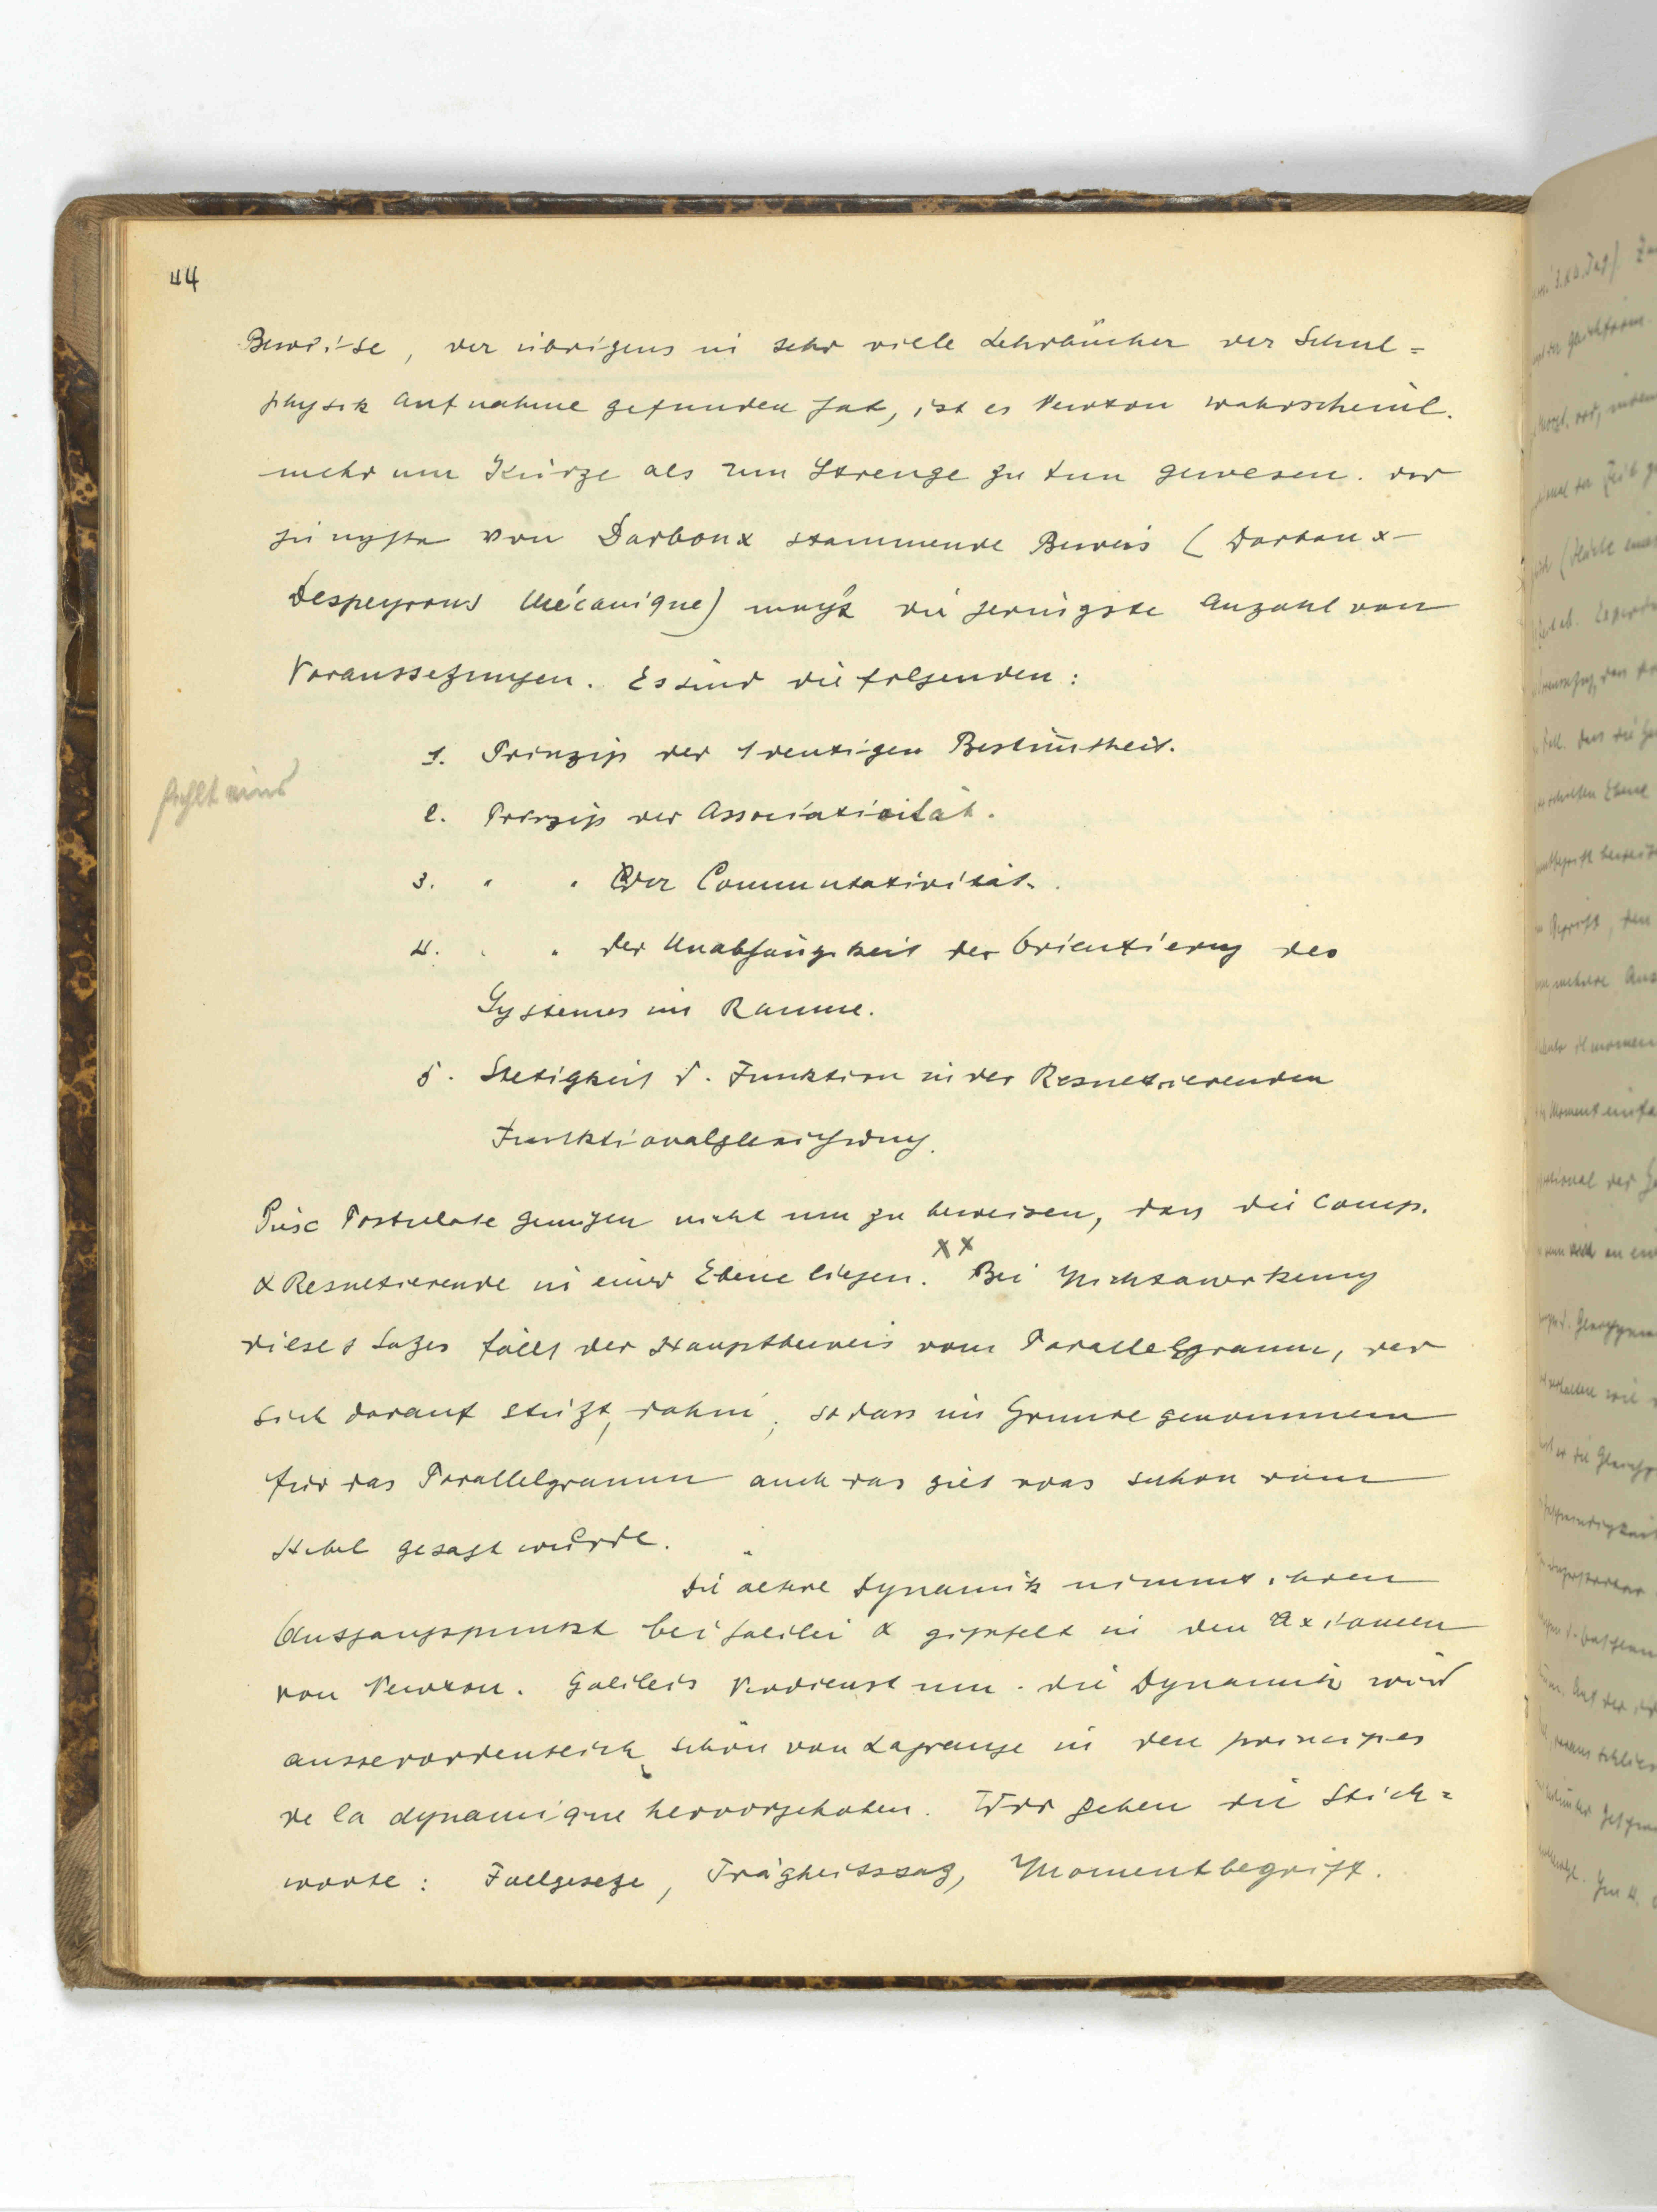 44
Beweise, der übrigens in sehr viele Lehrbücher der Schul=
physik Aufnahme gefunden hat, ist es Newton wahrscheinl.
mehr um Kürze als um Strenge zu tun gewesen. Der
jüngste von Darboux stammende Beweis (Darboux-
Despeyrous Mécanique) macht die geringste Anzahl von
Voraussetzungen. Es sind die folgenden:
1. Prinzip der 1deutigen Bestim̄theit.
fehlt eins
2. Prinzip der Associativität.
3. " " der Commutativität.
4. " " der Unabhängigkeit der Orientierung des
Systemes im Raume.
5. Stetigkeit d. Funktion in der Resultierenden
Funktionalgleichung.
Diese Postulate genügen nicht um zu beweisen, dass die Comp.
& Resultierende in einer Ebene liegen. xx Bei Nichtanerkennung
dieses Satzes fällt der Hauptbeweis vom Parallelgramm, der
sich darauf stützt, dahin, sodass im Grunde genommen
für das Parallelgramm auch das gilt was schon vom
Hebel gesagt wurde.
Die ältere Dynamik nimmt ihren
Ausgangspunkt bei Galilei & gipfelt in den Axiomen
von Newton. Galileis Verdienst um die Dynamik wird
ausserordentlich schön von Lagrange in den principes
de la dynamique hervorgehoben. Wir geben die Stich=
worte: Fallgesetze, Trägheitssatz, Momentbegriff.